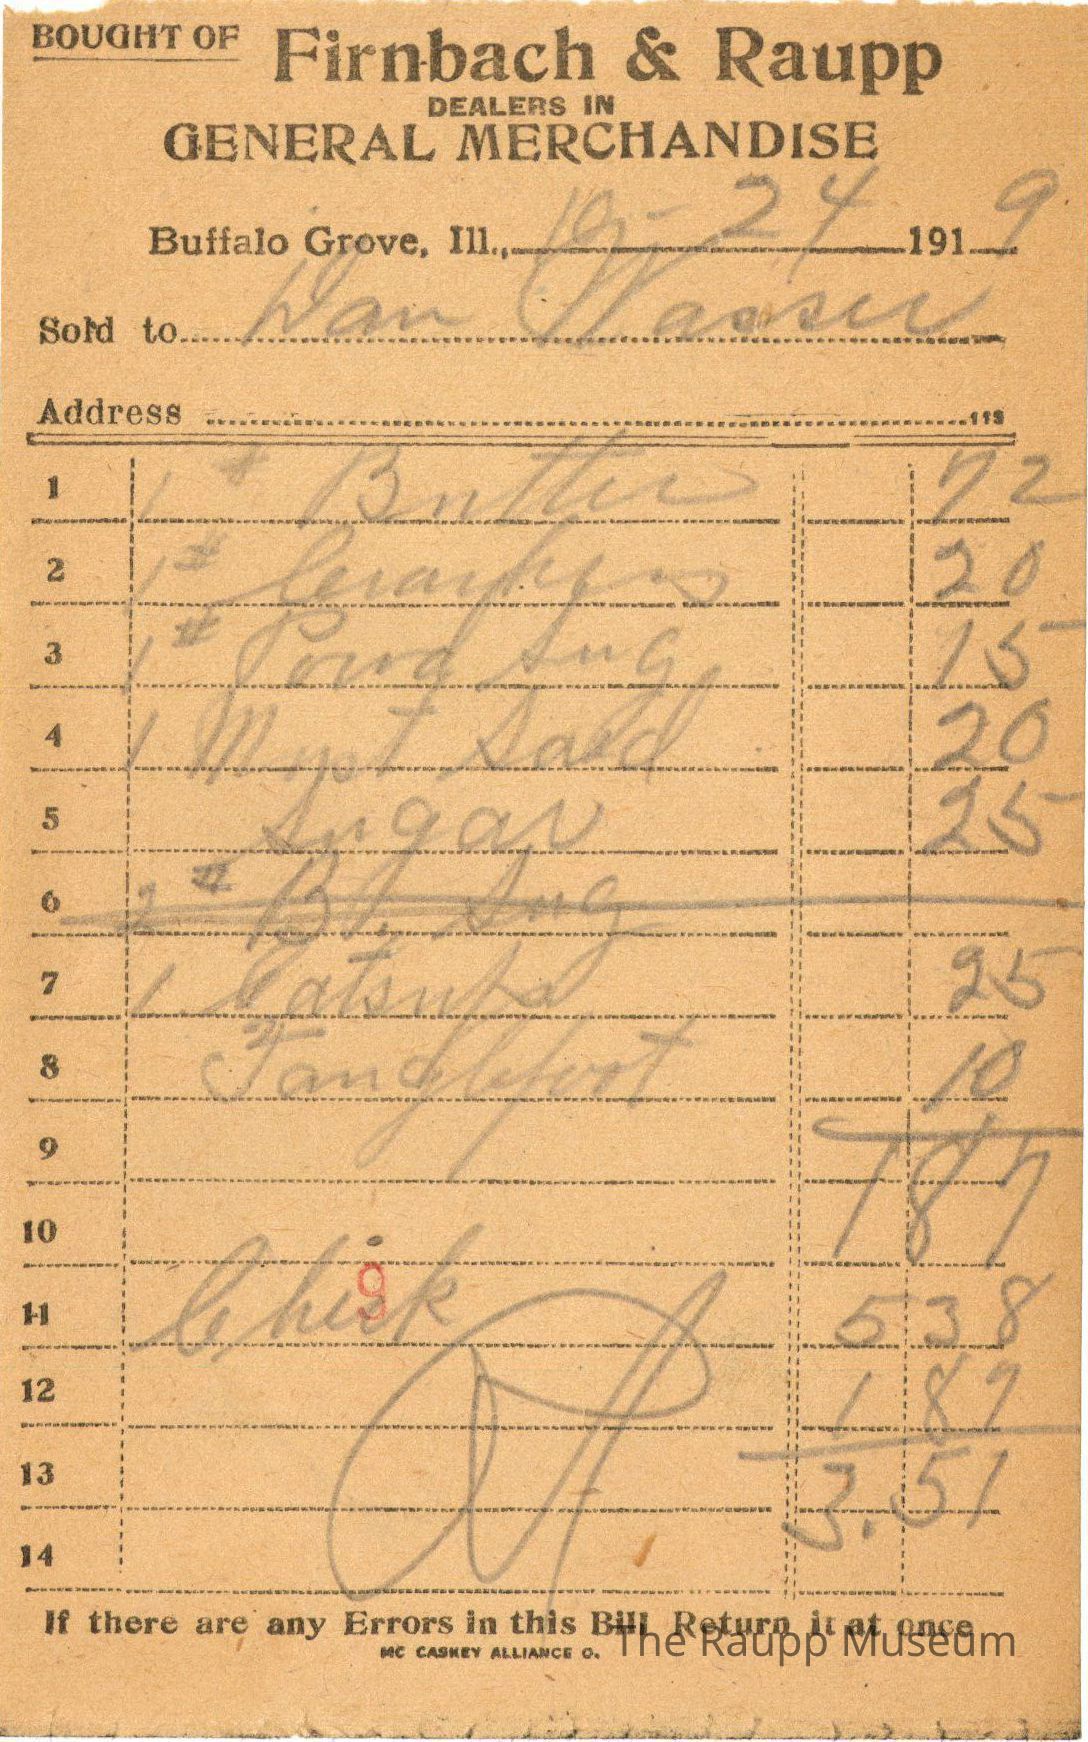 BOUGHT OF Firnbach & Raupp
DEALERS IN
GENERAL MERCHANDISE
Buffalo Grove, Ill., 24 1919
Sold to Dan Wasser
Address
1 1 # Butter 72
2 1 # Crackers 20
3 1 # Powd Sug. 15
4 1 Must Sald 20
5 Sugar 25
6 2 # Br. Sug
7 1 Catsup 25
8 Tanglefoot 10
9 187
10
11 Chick 5 38
12 1 87
13 3.51
14
9
If there are any Errors in this Bill Return it at once
MC CASKEY ALLIANCE O.
The Raupp Museum